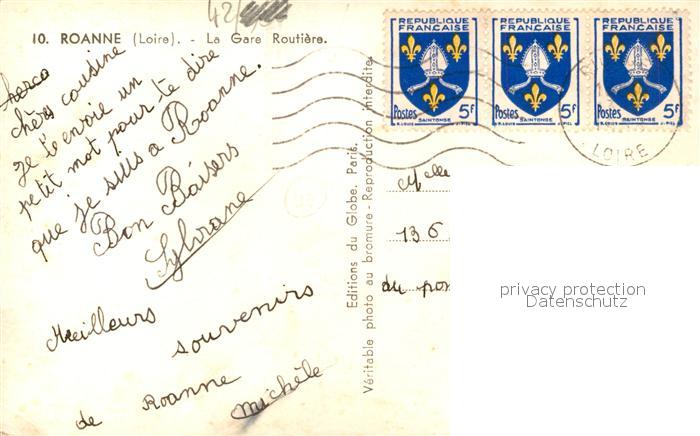 42
10. ROANNE (Loire). - La Gare Routière.
chère cousine
je t'envoie un
petit mot pour te dire
que je suis a Roanne.
Bon Baisers
Sylviane
Meilleurs
souvenirs
de Roanne
Michèle
Editions du Globe. Paris.
Véritable photo au bromure - Reproduction interdite.
REPUBLIQUE FRANÇAISE
Postes 5F
SAINTONGE
REPUBLIQUE FRANÇAISE
Postes 5F
SAINTONGE
REPUBLIQUE FRANÇAISE
Postes 5F
SAINTONGE
LOIRE
Melle
136
du pon
privacy protection
Datenschutz